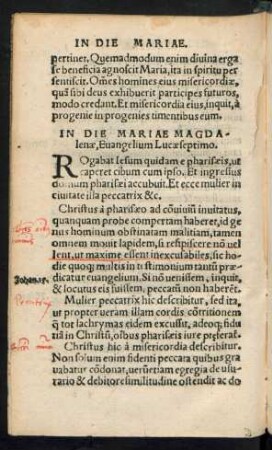 IN DIE MARIAE.
pertinet. Quemadmodum enim diuina erga
se beneficia agnoscit Maria, ita in spiritu per
sentiscit. Omẽs homines eius misericordiæ,
quã sibi deus exhibuerit participes futuros,
modo credant. Et misericordia eius, inquit, à
progenie in progenies timentibus eum.
IN DIE MARIAE MAGDA-
lenæ, Euangelium Lucæ septimo.
ROgabat Iesum quidam e phariseis, ut
caperet cibum cum ipso. Et ingressus
domum pharisæi accubuit. Et ecce mulier in
ciuitate illa peccatrix &c.
Christus à pharisæo ad cõuiuiũ inuitatus,
quanquam probe compertam haberet, id ge
nus hominum obstinatam malitiam, tamen
omnem mouit lapidem, si respiscere nõ uel
lent, ut maxime essent inexcusabiles, sic ho
die quoq; multis in testimonium tantũ præ-
dicatur euangelium. Si nõ uenissem, inquit,
& locutus eis fuissem, peccatũ non haberẽt.
Iohan. 15.
Mulier peccatrix hic describitur, sed ita,
ut propter ueram illam cordis cõtritionem
q̃ tot lachrymas eidem excussit, adeoq; fidu
tiã in Christũ, oĩbus phariseis iure præferat.
Christus hic à misericordia describitur.
Non solum enim fidenti peccata quibus gra
uabatur cõdonat, uerũetiam egregia de usu-
rario & debitore similitudine ostendit ac do